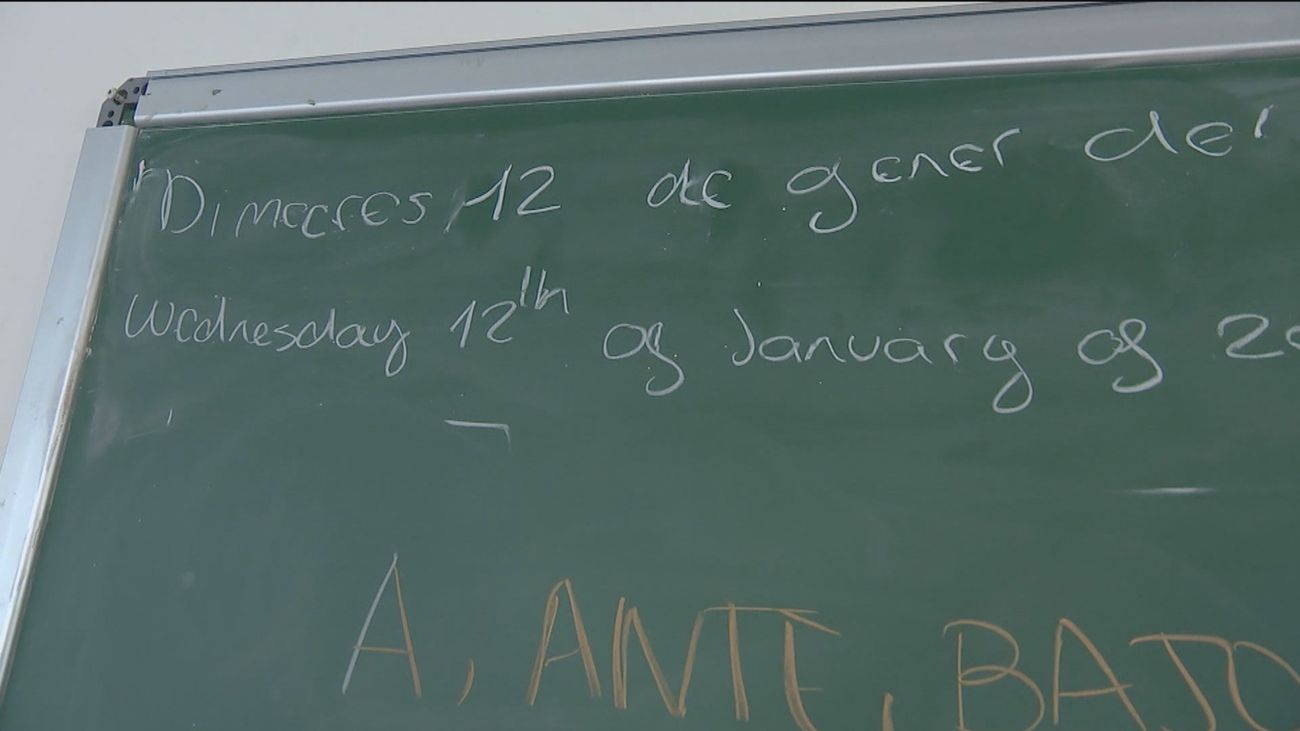 Dimecres 12 de gener del
Wednesday 12th of January of 20
A, ANTE, BAJO